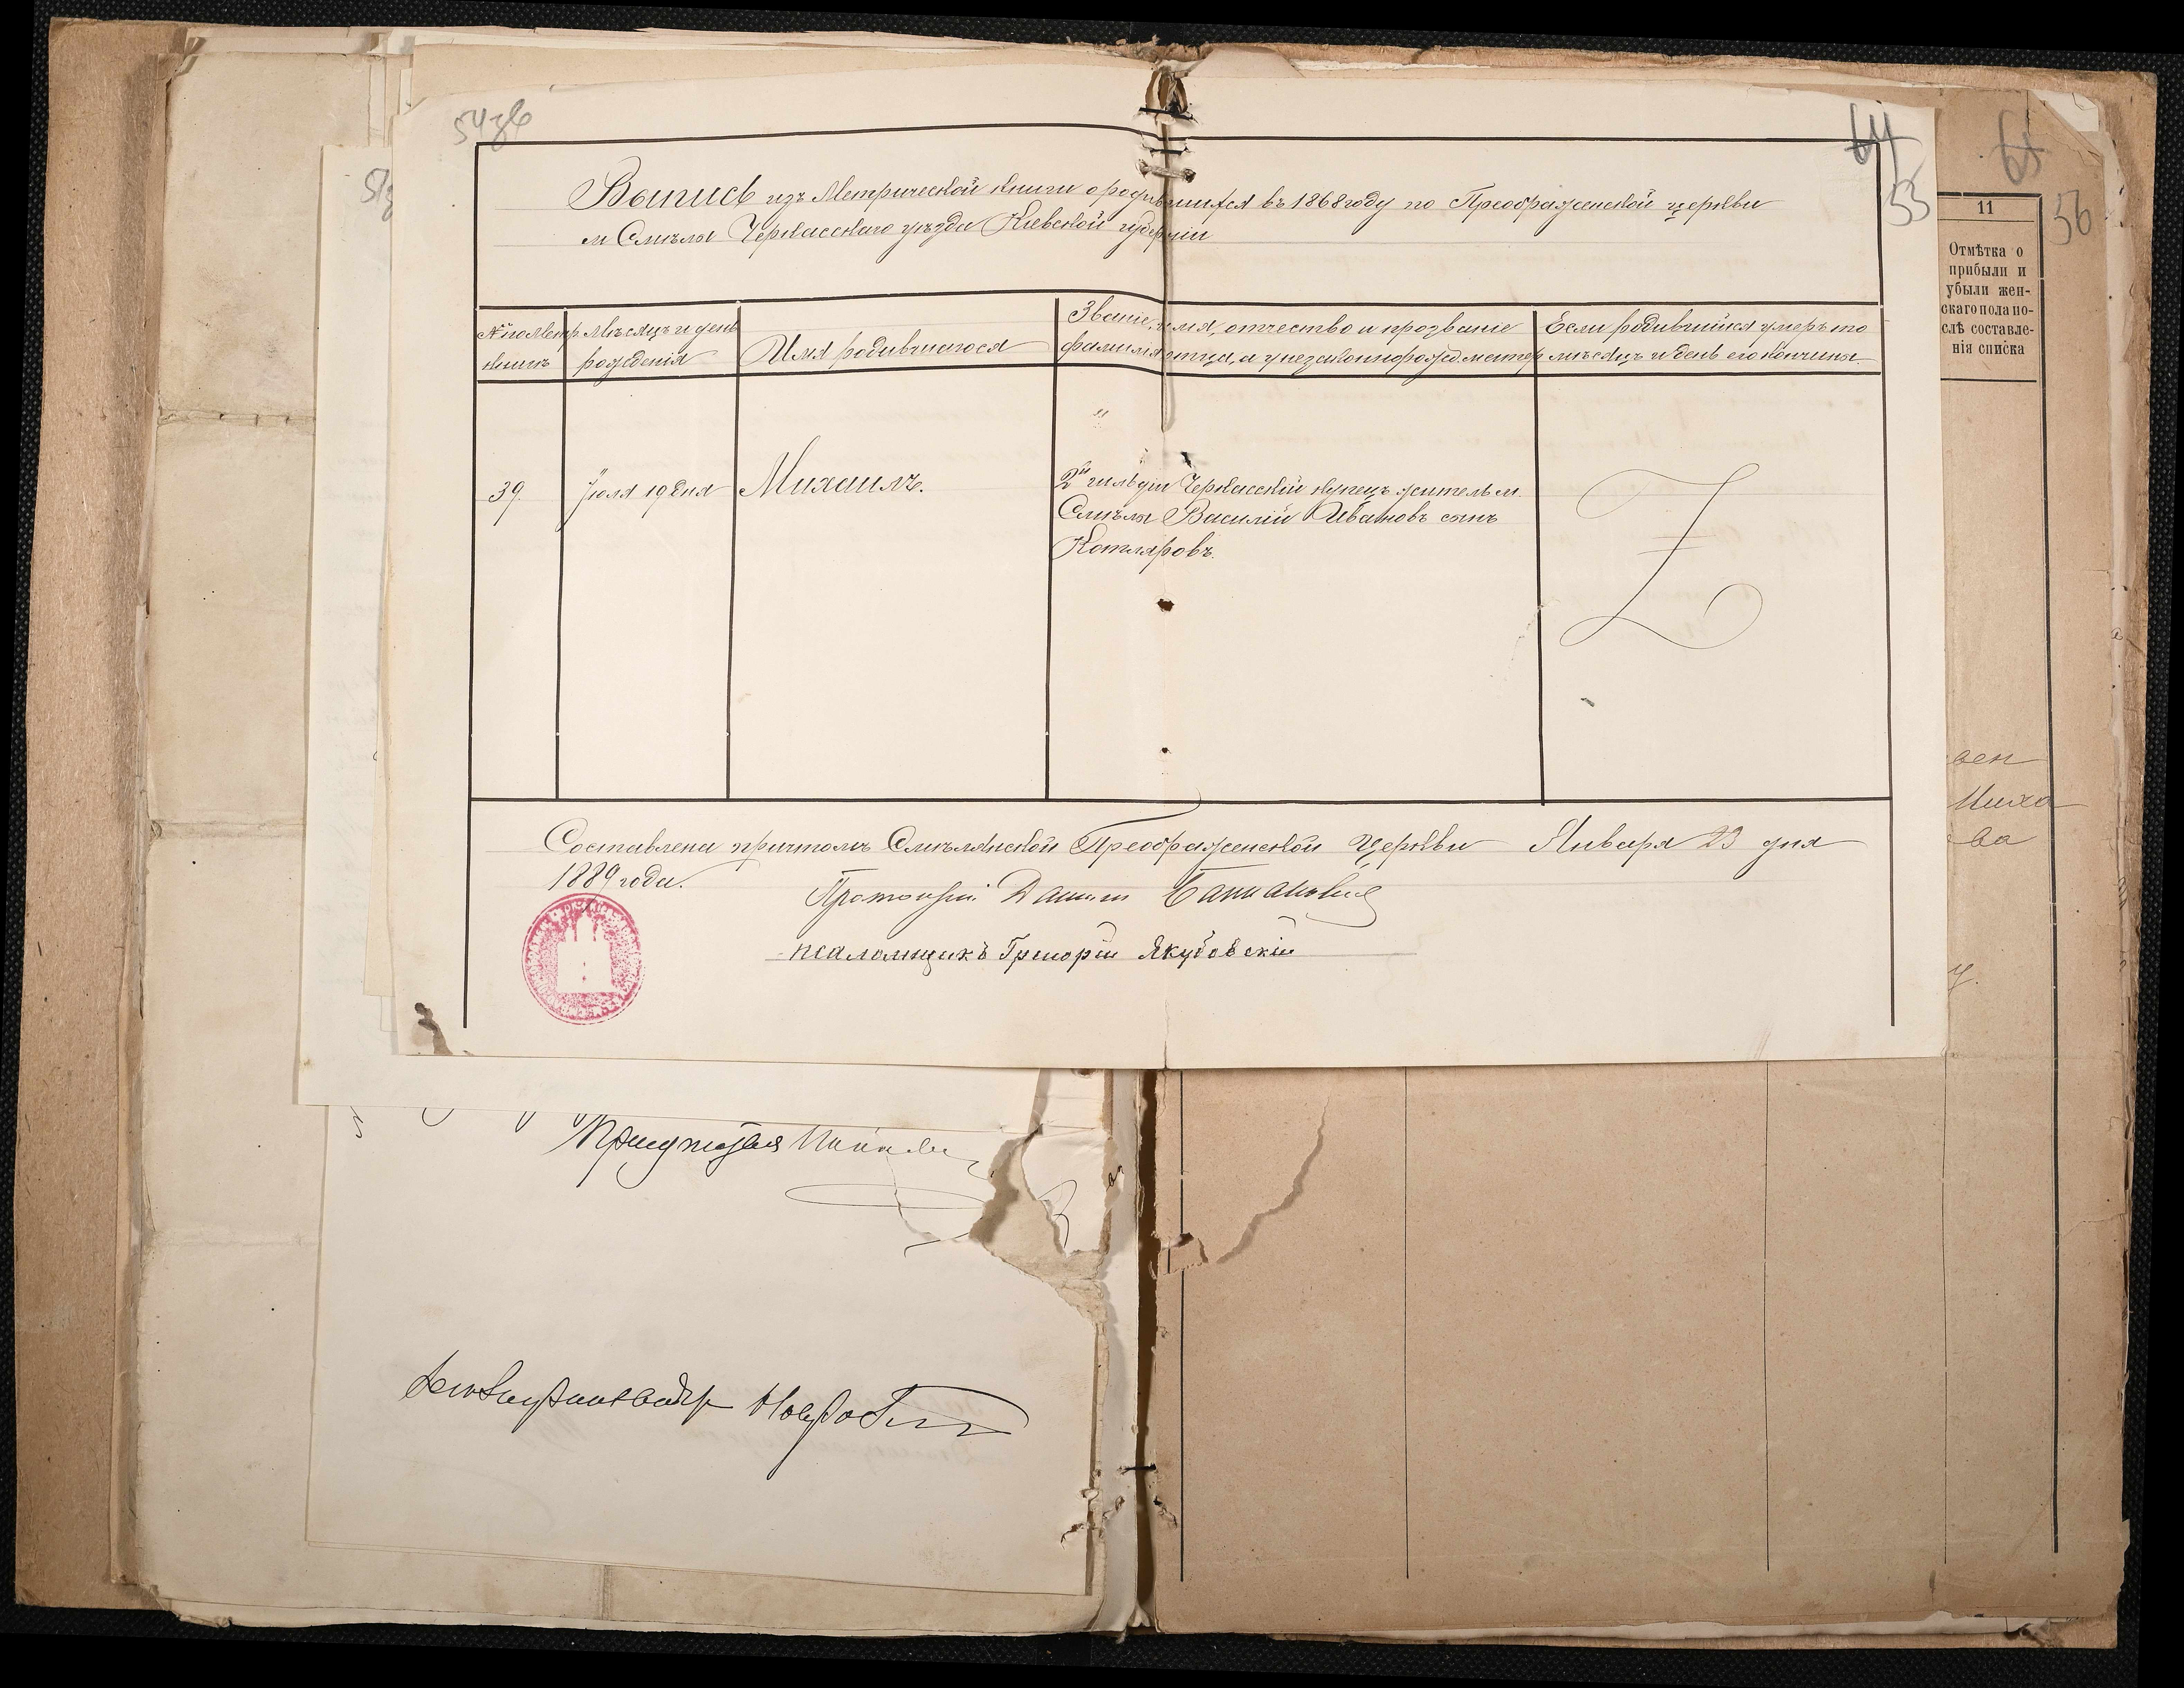 54зв
64
55
65
56
Выпись изъ Метрической книги о родившихся въ 1868 году по Преображенской церкви
м Смѣлы Черкасскаго уѣзда Кіевской губерніи
№ по Метр книгѣ
Мѣсяцъ и день рожденія
Имя родившагося
Званіе, имя, отчество и прозваніе
фамилія отца, а у незаконнорожд. матер
Если родившійся умеръ то
мѣсяцъ и день его кончины
39.
Іюля 19 дня
Михаилъ.
2й гильдіи Черкасскій купецъ житель м.
Смѣлы Василій Ивановъ сынъ
Котляровъ.
Составлена причтомъ Смѣлянской Преображенской Церкви Января 23 дня
1889 года.
Протоіерей Даніилъ
псаломщикъ Григорій Якубовскій
11
Отмѣтка о
прибыли и
убыли жен-
скаго пола по-
слѣ составле-
нія списка
Миха
ва